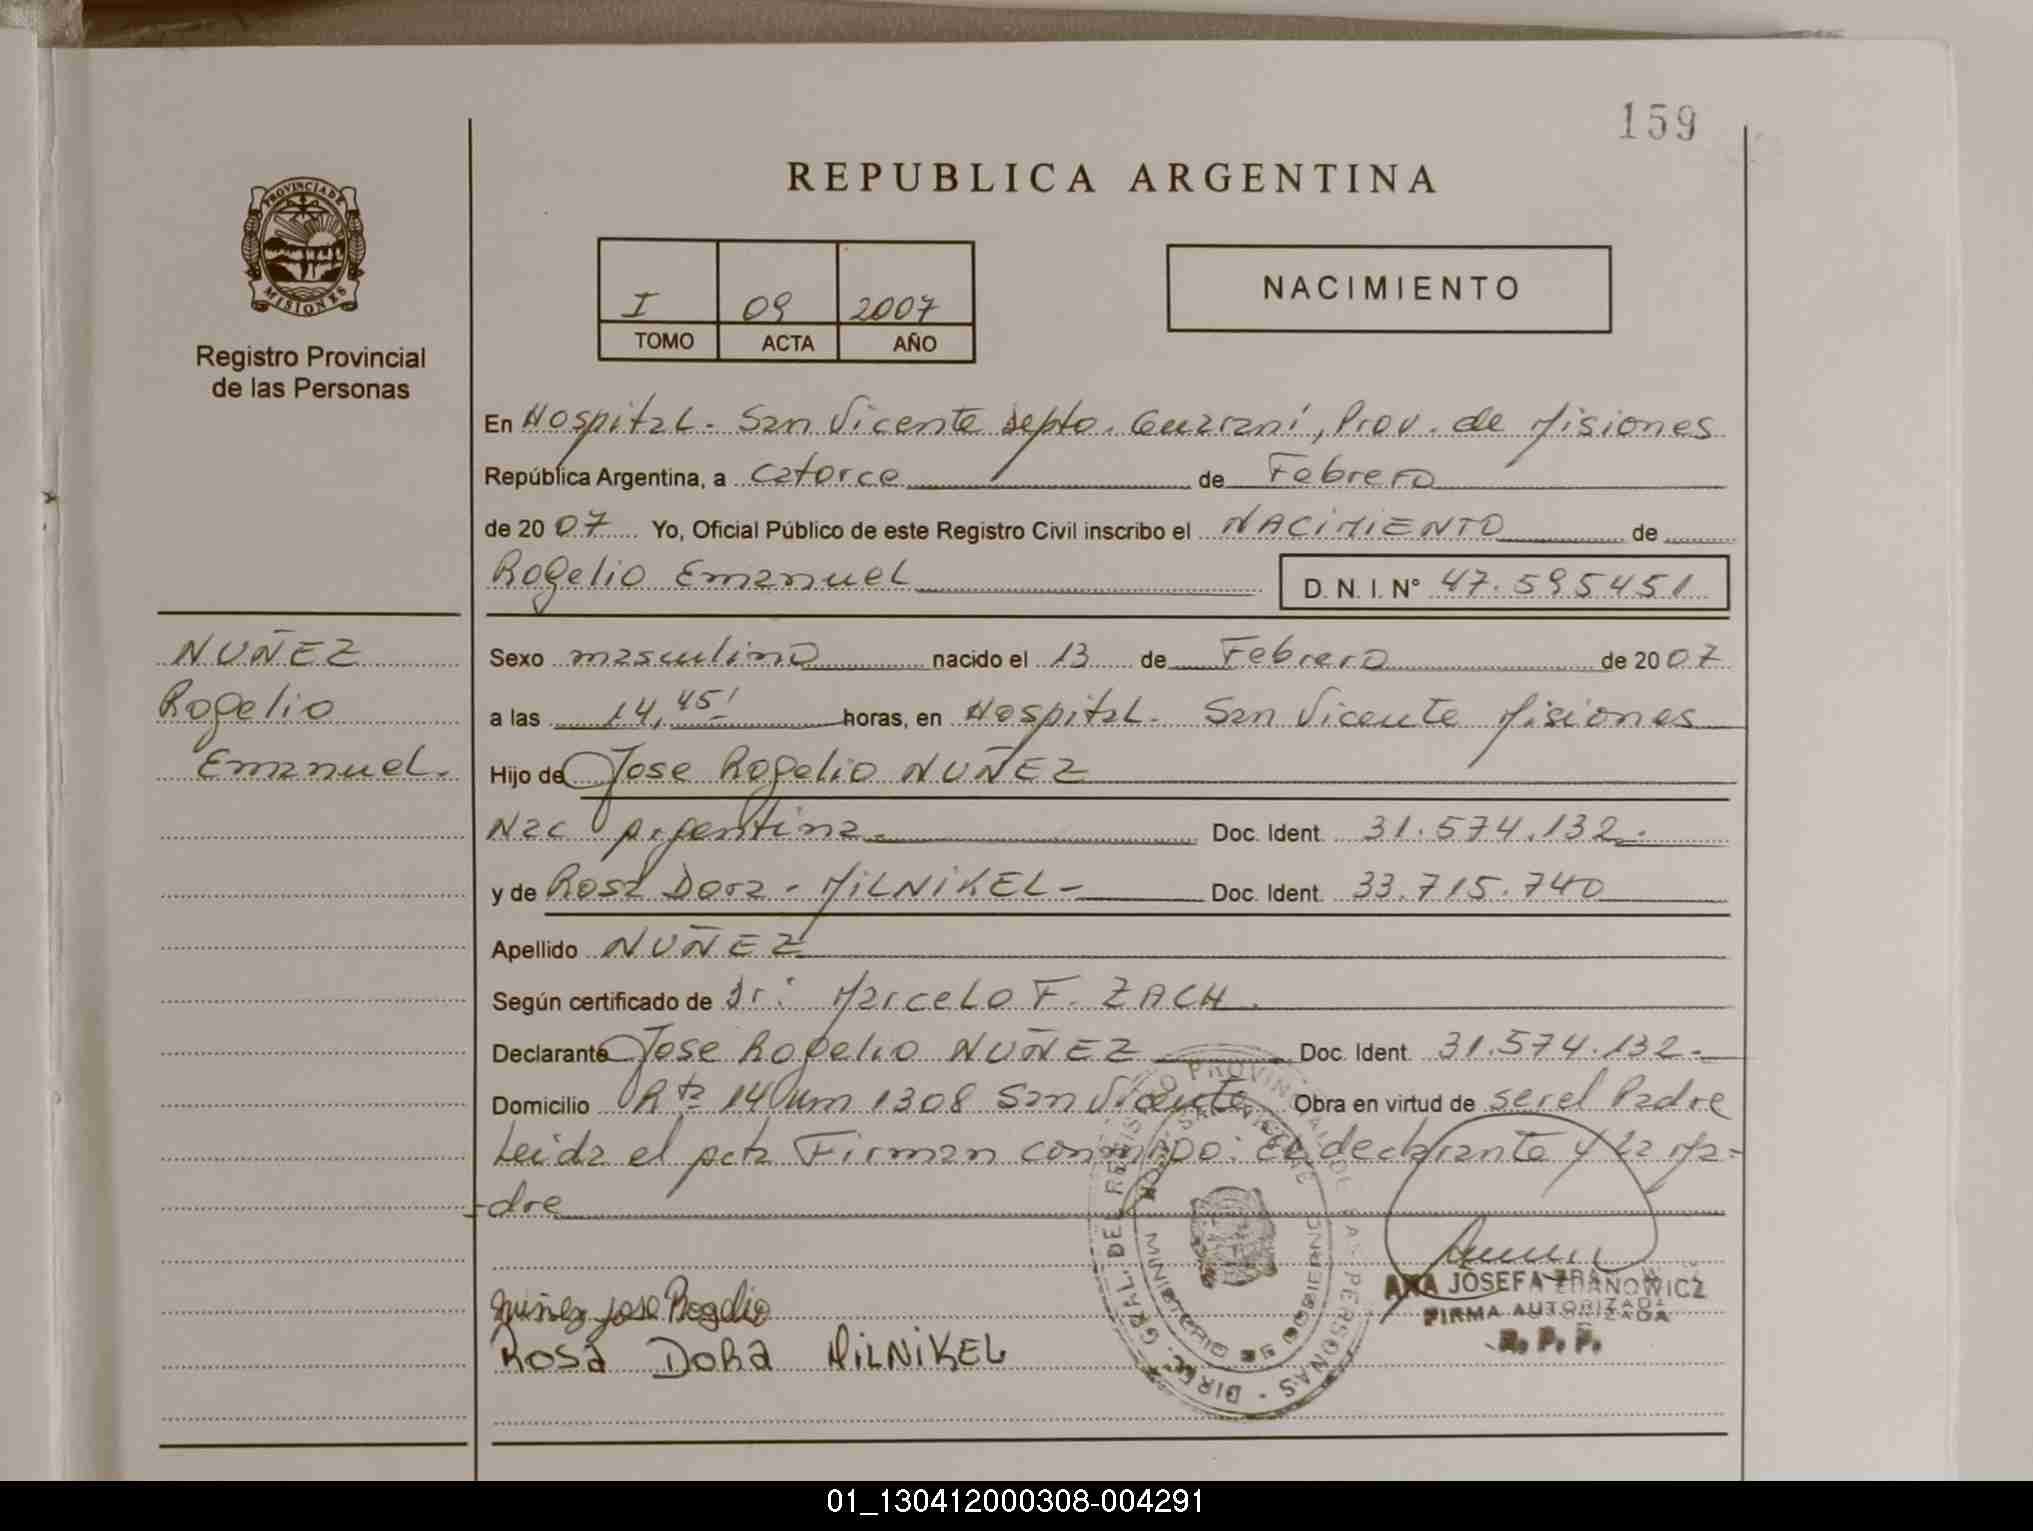 159
REPUBLICA ARGENTINA
PROVINCIA DE MISIONES
Registro Provincial
de las Personas
I 09 2007
TOMO ACTA AÑO
NACIMIENTO
En Hospital - San Vicente Depto. Guaraní, Prov. de Misiones
República Argentina, a catorce de Febrero
de 20 07 Yo, Oficial Público de este Registro Civil inscribo el NACIMIENTO de
Rogelio Emanuel D. N. I. N° 47.595451
NUÑEZ
Rogelio
Emanuel.
Sexo masculino nacido el 13 de Febrero de 20 07
a las 14,45' horas, en Hospital - San Vicente Misiones
Hijo de Jose Rogelio NUÑEZ
Nac Argentina - Doc. Ident. 31.574.132.-
y de Rosa Dora - MILNIKEL - Doc. Ident. 33.715.740
Apellido NUÑEZ
Según certificado de Dr: Marcelo F. ZACH.
Declarante Jose Rogelio NUÑEZ Doc. Ident. 31.574.132.-
Domicilio Rta 14 Km 1308 San Vicente Obra en virtud de ser el Padre
Leida el acta Firman conmigo: El declarante y la Ma-
-dre
Nuñez jose Rogelio
Rosa DoRa MiLNiKEL
DIREC. GRAL. DEL REGISTRO PROVINCIAL DE LAS PERSONAS
MINISTERIO DE GOBIERNO
ANA JOSEFA ZRANOWICZ
FIRMA AUTORIZADA
R. P. P.
01_130412000308-004291